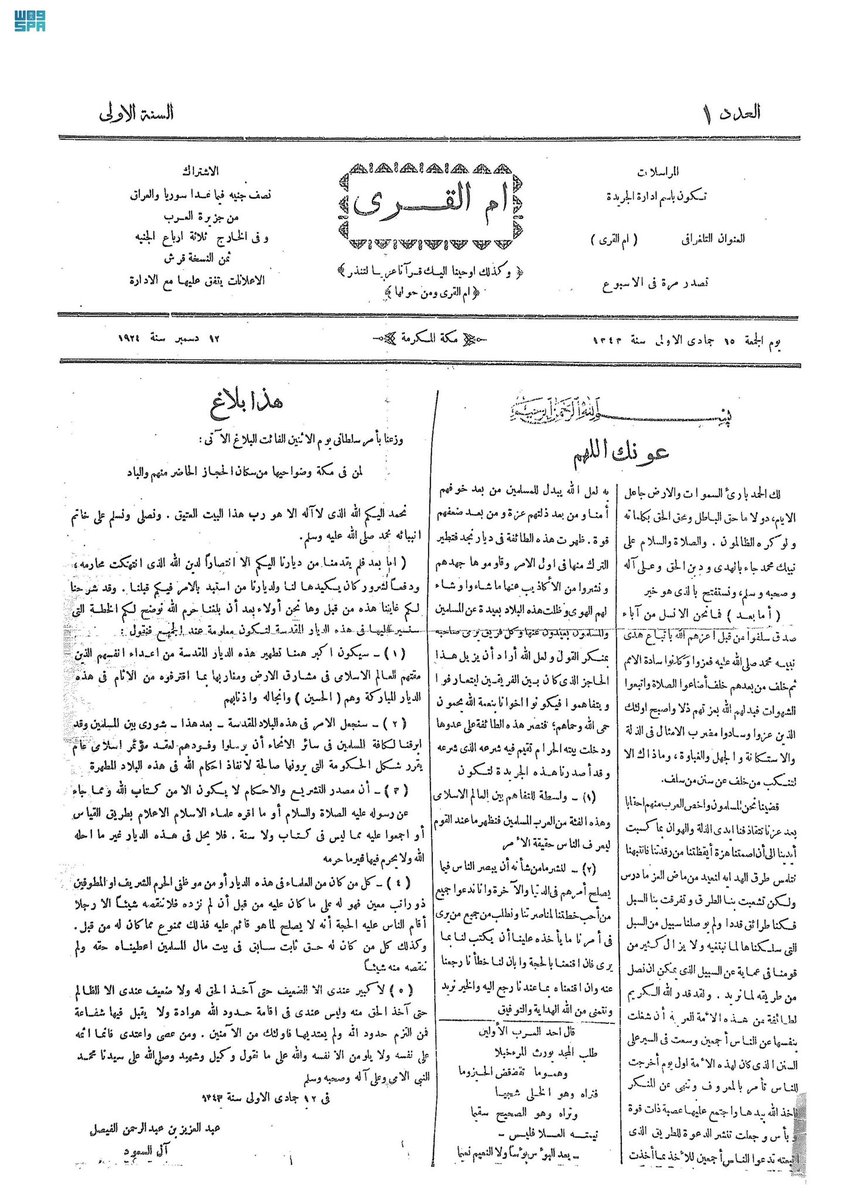 واس
SPA
العدد ١
السنة الاولى
المراسلات
تكون باسم ادارة الجريدة
العنوان التلغرافى ( ام القرى )
تصدر مرة فى الاسبوع
ام القــرى
﴿ وكذلك اوحينا اليك قرآنا عربيا لتنذر ﴾
﴿ ام القرى ومن حولها ﴾
الاشتراك
نصف جنيه فيما عدا سوريا والعراق
من جزيرة العرب
وفى الخارج ثلاثة ارباع الجنيه
ثمن النسخة قرش
الاعلانات يتفق عليها مع الادارة
يوم الجمعة ١٥ جمادى الاولى سنة ١٣٤٣
مكة المكرمة
١٢ دسمبر سنة ١٩٢٤
بسم الله الرحمن الرحيم
عونك اللهم
لك الحمد بارئ السموات والارض جاعل
الايام، دولا ماحق الباطل ومحق الحق بكلماته
ولو كره الظالمون . والصلاة والسلام على
نبيك محمد جاء بالهدى ودين الحق وعلى آله
وصحبه وسلم، ونستفتح بالذى هو خير
( أما بعد ) فما نحن الا نسل من آباء
صدق سلفوا من قبل اعزهم الله باتباع هدى
نبيه محمد صلى الله عليه فعزوا وكانوا سادة الامم
ثم خلف من بعدهم خلف أضاعوا الصلاة واتبعوا
الشهوات فبدلهم الله بعزتهم ذلا واصبح اولئك
الذين عزوا وسادوا مضرب الامثال فى الذلة
والاستكانة والجهل والغباوة، وما ذاك الا
لتنكب من خلف عن سنن من سلف.
قضينا نحن المسلمون واخص العرب منهم احقابا
بعد عزنا تتقاذفنا ايدى الذلة والهوان بما كسبت
أيدينا الى أن اصمتنا هزة أيقظتنا من رقدتنا فانتبهنا
نتلمس طرق الهداية لنعيد من ماضى العز ما درس
ولكن تشعبت بنا الطرق وتفرقت بنا السبل
فكنا طرائق قددا ولم يوصلنا سبيل من السبل
التى سلكناها لما نبتغيه ولا يزال كثير من
قومنا فى عماية عن السبيل الذى يمكن ان نصل
من طريقه لما نريد . ولقد قدر الله الكريم
لطائفة من هذه الأمة العربية أن شغلت
بنفسها عن الناس أجمعين وسعت فى السير على
السنن الذى كان لهذه الأمة اول يوم أخرجت
للناس تأمر بالمعروف وتنهى عن المنكر
فأخذ الله بيدها واجتمع عليها عصبة ذات قوة
وبأس وجعلت تنشر الدعوة للطريق الذى
اتبعته تدعوا الناس أجمعين للأخذ بما أخذت
به لعل الله يبدل للمسلمين من بعد خوفهم
أمنا ومن بعد ذلتهم عزة ومن بعد ضعفهم
قوة. ظهرت هذه الطائفة فى ديار نجد فتطير
الترك منها فى اول الامر وقاوموها جهدهم
ونشروا من الأكاذيب عنها ما شاءوا وشاء
لهم الهوى وظلت هذه البلاد بعيدة عن المسلمين
والمسلمون بعيدون عنها وكل فريق يرى صاحبه
بمنكر القول ولعل الله أراد أن يزيل هذا
الحاجز الذى كان بين الفريقين ليتعارفوا
ويتفاهموا فيكونوا اخوانا بنعمة الله محمون
حمى الله وحماهم؛ فنصر هذه الطائفة على عدوها
ودخلت بيته الحرام تقيم فيه شرعه الذى شرعه
وقد أصدرنا هذه الجريدة لتكون
(١) - واسطة للتفاهم بين العالم الاسلامى
وهذه الفئة من العرب المسلمين فنظهر ما عند القوم
ليعرف الناس حقيقة الأمر
(٢) - لنشر ما من شأنه أن يبصر الناس فيما
يصلح أمرهم فى الدنيا والآخرة وانا ندعوا جميع
من أحب خطتنا لمناصرتنا ونطلب من جميع من يرى
فى أمرنا ما يأخذه علينا أن يكتب لنا بما
يرى فان اقنعنا بالحجة وابان لنا خطأنا رجعنا
عنه وان اقنعناه بما عندنا رجع اليه والخير نريد
ونتمنى من الله الهداية والتوفيق
قال احد العرب الأولين
طلب المجد يورث المرء خبلا
وهموما تقضقض الحيزوما
فتراه وهو الخلى شجيا
وتراه وهو الصحيح سقيا
تيمته العلا فليس
يعد البؤس بؤسا ولا النعيم نعيا
هذا بلاغ
وزعنا بأمر سلطانى يوم الاثنين الفائت البلاغ الآتى :
لمن فى مكة وضواحيها من سكان الحجاز الحاضر منهم والباد
نحمد اليكم الله الذى لا آله الا هو رب هذا البيت العتيق . ونصلى ونسلم على خاتم
انبيائه محمد صلى الله عليه وسلم.
( اما بعد فلم يقدمنا من ديارنا اليكم الا انتصارًا لدين الله الذى انتهكت محارمه،
ودفعًا لشرور كان يكيدها لنا ولديارنا من استبد بالامر فيكم قبلنا . وقد شرحنا
لكم غايتنا هذه من قبل وها نحن أولاء بعد أن بلغنا حرم الله نوضح لكم الخطة التى
سنسير عليها فى هذه الديار المقدسة لتكون معلومة عند الجميع فنقول :
( ١ ) - سيكون اكبر همنا تطهير هذه الديار المقدسة من اعداء انفسهم الذين
مقتهم العالم الاسلامى فى مشارق الارض ومغاربها بما اقترفوه من الآثام فى هذه
الديار المباركة وهم ( الحسين ) وانجاله واذنابهم
( ٢ ) - سنجعل الامر فى هذه البلاد المقدسة - بعد هذا - شورى بين المسلمين وقد
ابرقنا لكافة المسلمين فى سائر الانحاء أن يرسلوا وفودهم لعقد مؤتمر اسلامى عام
يقرر شكل الحكومة التى يرونها صالحة لانفاذ احكام الله فى هذه البلاد المطهرة
( ٣ ) - أن مصدر التشريع والاحكام لا يكون الا من كتاب الله ومما جاء
عن رسوله عليه الصلاة والسلام أو ما اقره علماء الاسلام الاعلام بطريق القياس
أو اجمعوا عليه مما ليس فى كتاب ولا سنة . فلا يحل فى هذه الديار غير ما احله
الله ولا يحرم فيها غير ما حرمه
( ٤ ) - كل من كان من العلماء فى هذه الديار أو من موظفى الحرم الشريف او المطوفين
ذو راتب معين فهو له على ما كان عليه من قبل أن لم نزده فلا ننقصه شيئًا الا رجلا
أقام الناس عليه الحجة أنه لا يصلح لما هو قائم عليه فذلك ممنوع مما كان له من قبل.
وكذلك كل من كان له حق ثابت سابق فى بيت مال المسلمين اعطيناه حقه ولم
ننقصه منه شيئًا
( ٥ ) لا كبير عندى الا الضعيف حتى آخذ الحق له ولا ضعيف عندى الا الظالم
حتى آخذ الحق منه وليس عندى فى اقامة حدود الله هوادة ولا يقبل فيها شفاعة
فمن التزم حدود الله ولم يعتديها فاولئك من الآمنين . ومن عصى واعتدى فانما اثمه
على نفسه ولا يلومن الا نفسه والله على ما نقول وكيل وشهيد وصلى الله على سيدنا محمد
النبى الامى وعلى آله وصحبه وسلم
فى ١٢ جمادى الاولى سنة ١٣٤٣
عبد العزيز بن عبد الرحمن الفيصل
آل السعود